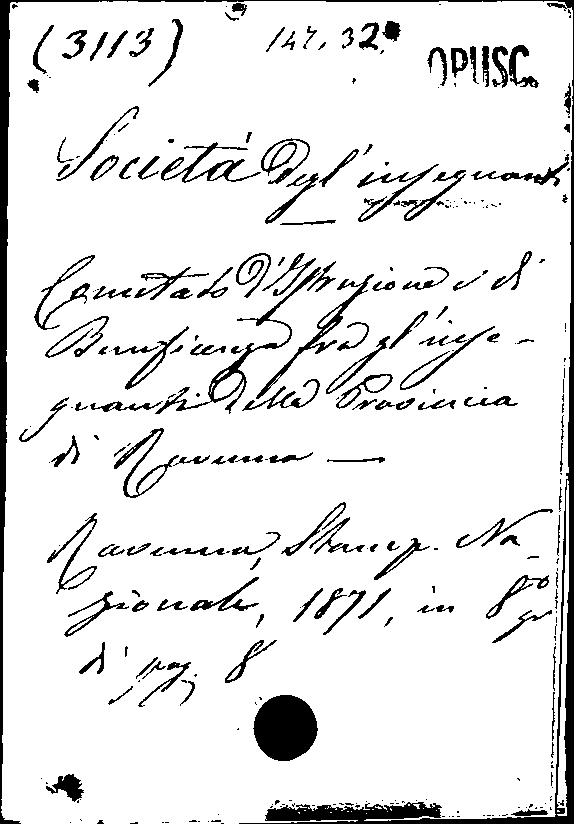 (3113) 147.32. OPUSC.
Società degl'insegnanti
Comitato d'Istruzione e di
Beneficenza fra gl'inse-
gnanti della Provincia
di Ravenna —
Ravenna, Stamp. Na-
zionale, 1871, in 8º gr
di pag. 8